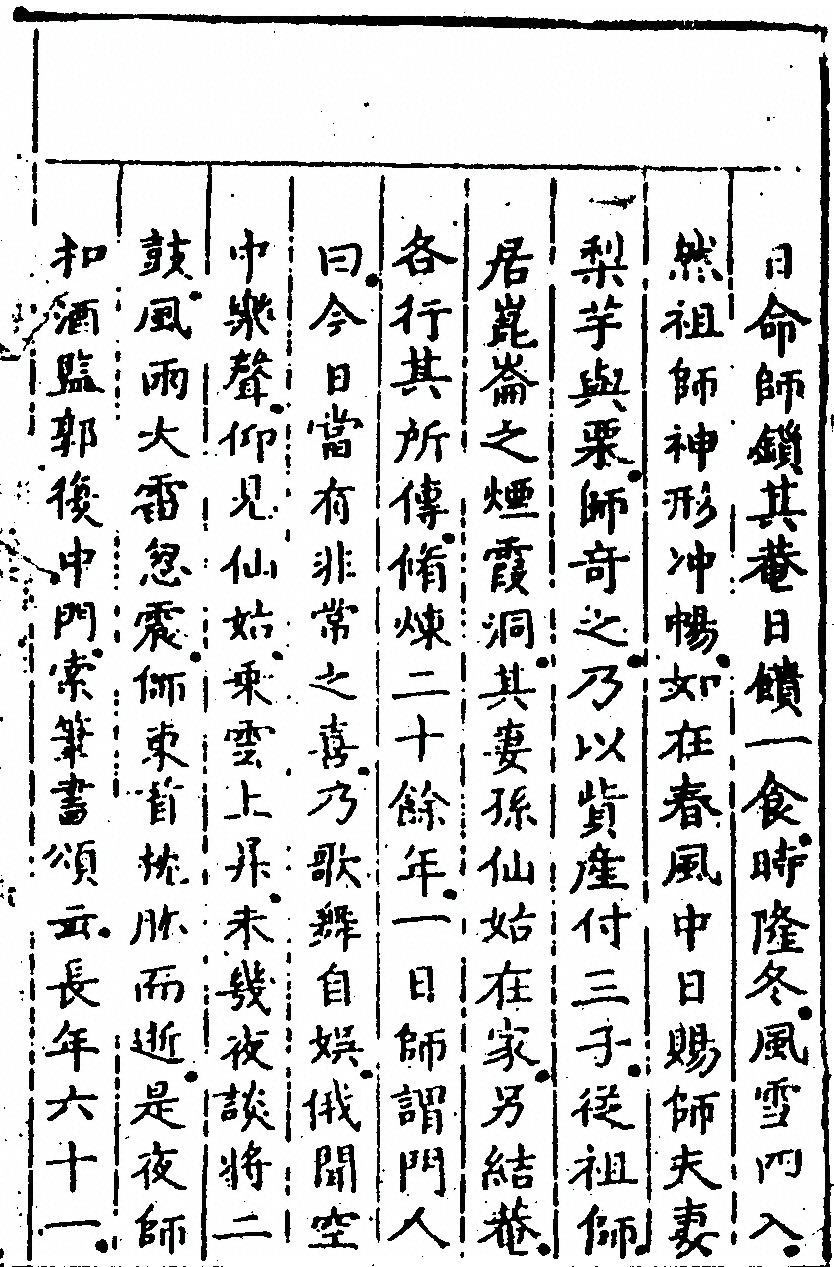 日命師鎖其菴日饋一食時隆冬風雪四入
然祖師神形冲暢如在春風中日賜師夫妻
梨芋與栗師奇之乃以貲産付三子從祖師
居崑崙之煙霞洞其妻孫仙姑在家另結菴
各行其所傳脩煉二十餘年一日師謂門人
曰今日當有非常之喜乃歌舞自娛俄聞空
中樂聲仰見仙姑乘雲上昇未幾夜談將二
鼓風雨大雷忽震師東首枕肱而逝是夜師
扣酒監郭復中門索筆書頌云長年六十一